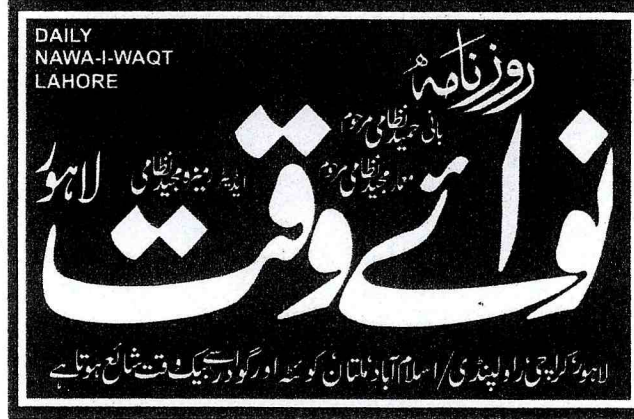 DAILY
NAWA-I-WAQT
LAHORE
روزنامہ
نوائے وقت
بانی حمید نظامی مرحوم
معمار مجید نظامی مرحوم
ایڈیٹر رمیزہ مجید نظامی
لاہور
لاہور، کراچی، راولپنڈی/اسلام آباد، ملتان، کوئٹہ اور گوادر سے بیک وقت شائع ہوتا ہے